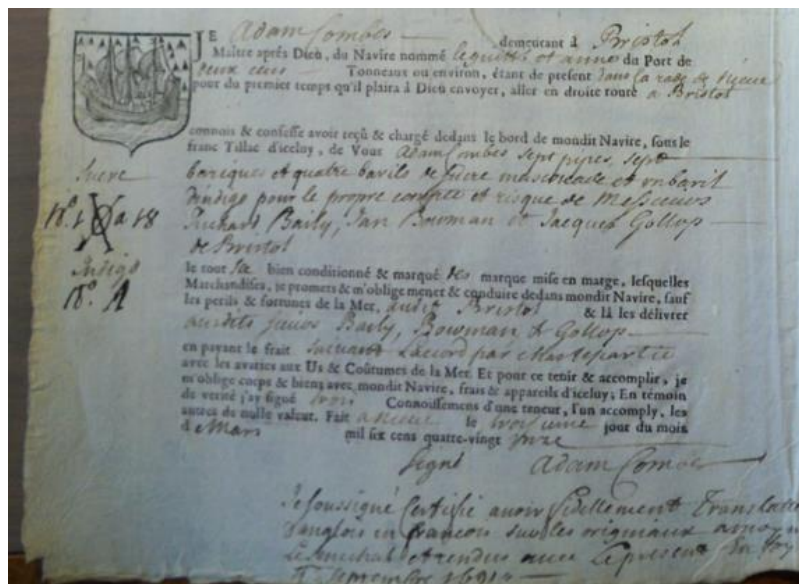 JE Adam Combes demeurant à Bristol
Maître aprés Dieu, du Navire nommé et anne du Port de
Deux cens Tonneaux ou environ, étant de present dans la rade de
pour du premier temps qu'il plaira à Dieu envoyer, aller en droite route a Bristol
connois & confesse avoir reçû & chargé dedans le bord de mondit Navire, sous le
franc Tillac d'iceluy, de Vous Adam Combes sept pipes, sept
Sucre
bariques et quatre barils de sucre mascouade et un baril
d'indigo pour le propre compte et risque de Messieurs
Nº. 1 a 18
Richard Baily, Jan Bowman et Jacques Gollop
de Bristol
Indigo
le tout bien conditionné & marqué des marque mise en marge, lesquelles
Nº. A
Marchandises, je promets & m'oblige mener & conduire dedans mondit Navire, sauf
les perils & fortunes de la Mer, audit Bristol & là les délivrer
ausdits sieurs Baily, Bowman & Gollop
en payant le frait suivant Lacord par
avec les avaries aux Us & Coûtumes de la Mer. Et pour ce tenir & accomplir, je
m'oblige corps & biens avec mondit Navire, frais & appareils d'iceluy; En témoin
de verité j'ay signé trois Connoissemens d'une teneur, l'un accomply, les
autres de nulle valeur. Fait le troisieme jour du mois
de Mars mil six cens quatre-vingt onze
Signé Adam Combes
Je soussigné Certifie avoir fidellement Translaté
D'anglois en francois sur les originaux
et rendus avec Le present En foy
Septembre 1691